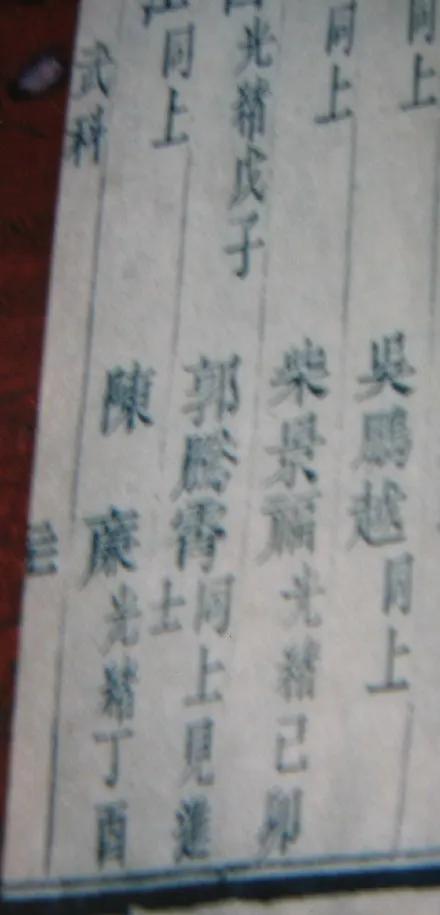 同上
吳鵬越同上
同上
柴景福光緒己卯
光緒戊子
郭騰霄同上見進
士
同上
陳賡光緒丁酉
武科